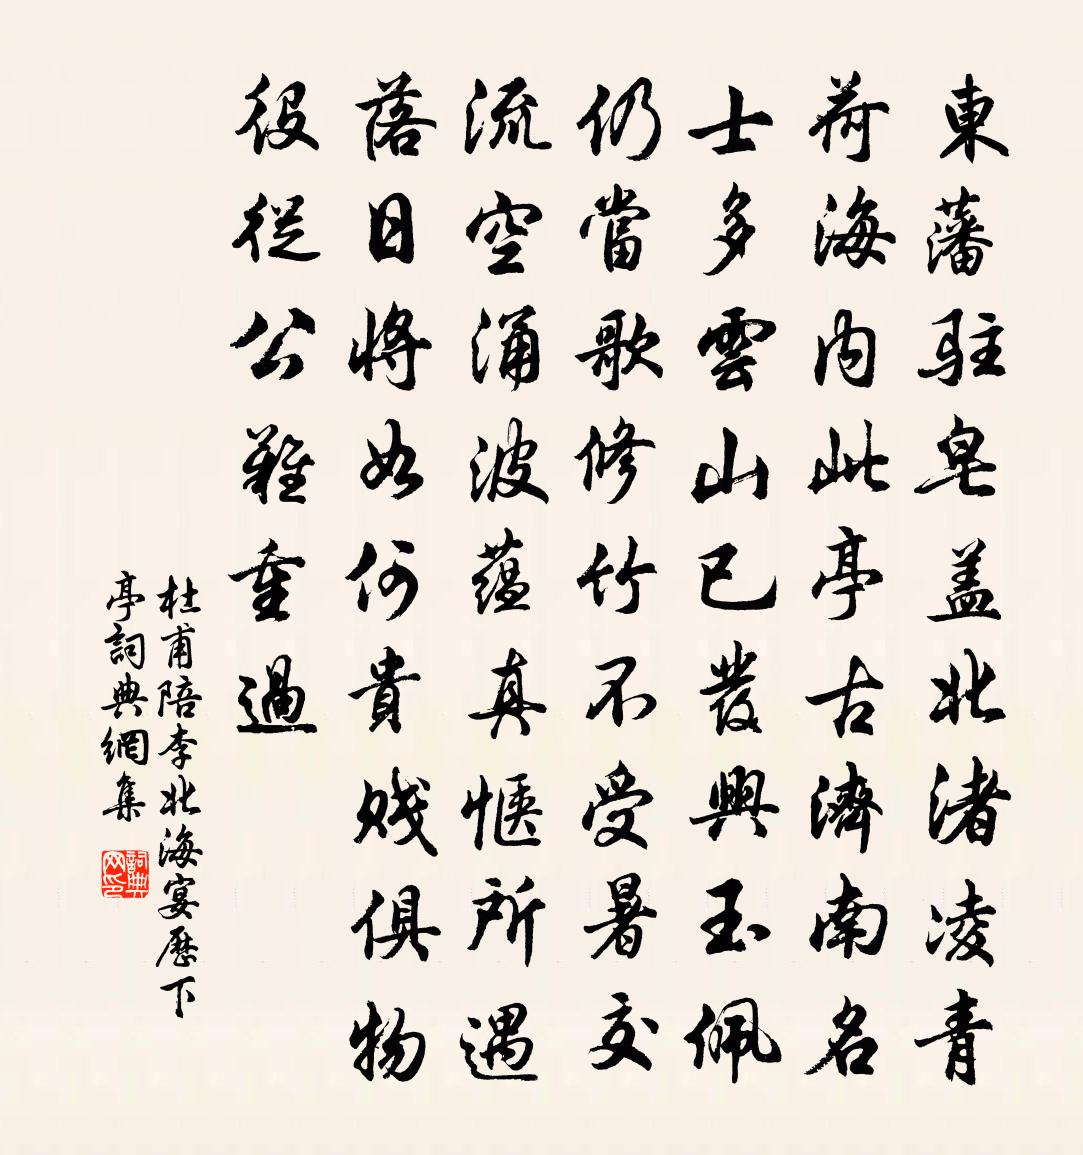 東藩駐皂盖北渚淩青
荷海内此亭古濟南名
士多雲山已發興玉佩
仍當歌修竹不受暑交
流空涌波蘊真愜所遇
落日將如何貴賤俱物
役從公難重過
杜甫陪李北海宴歷下
亭詞典網集
詞典网印